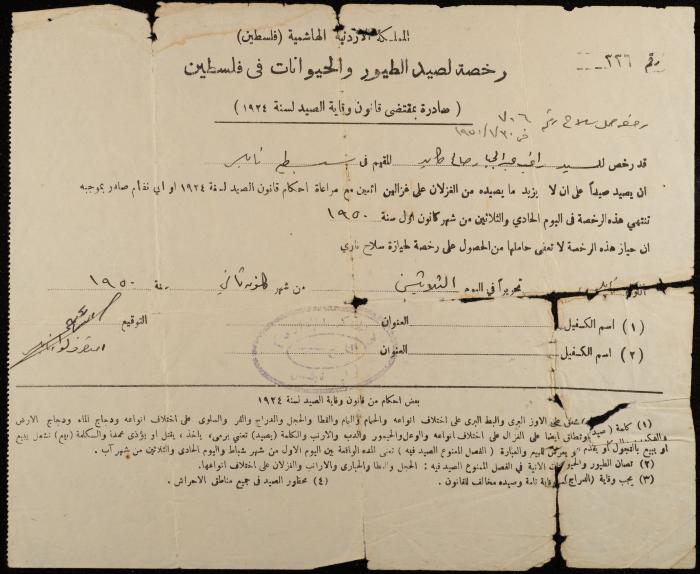 المملكة الأردنية الهاشمية (فلسطين)
رخصة لصيد الطيور والحيوانات فى فلسطين
رقم ٣٣٦
( صادرة بمقتضى قانون وقاية الصيد لسنة ١٩٢٤ )
رخصة حمل سلاح رقم ٧٠٦
في ٣٠/١/١٩٥٠
قد رخص للسيد المقيم فى
ان يصيد صيداً على ان لا يزيد ما يصيده من الغزلان على غزالين اثنين مع مراعاة احكام قانون الصيد لسنة ١٩٢٤ او اي نظام صادر بموجبه
تنتهي هذه الرخصة فى اليوم الحادي والثلاثين من شهر كانون اول سنة ١٩٥٠
ان حيازة هذه الرخصة لا تعفى حاملها من الحصول على رخصة لحيازة سلاح ناري
تحريراً في اليوم الثلاثين من شهر كانون ثاني سنة ١٩٥٠
(١) اسم الكفيل العنوان التوقيع
(٢) اسم الكفيل العنوان
بعض احكام من قانون وقاية الصيد لسنة ١٩٢٤
(١) كلمة (صيد) على الاوز البري والبط البري على اختلاف انواعه والحمام واليمام والقطا والحجل والدراج والفر والسلوى على اختلاف انواعه ودجاج الماء ودجاج الارض
وتطلق ايضا على الغزال على اختلاف انواعه والوعل واليحمور والدب والارنب والكلمة (يصيد) تعني يرمى، ياخذ، يقتل او يؤذى عمدا والكلمة (بيع) تشمل يبيع
او يبيع بالتجول او يقدم او يعرض للبيع والعبارة (الفصل الممنوع الصيد فيه) تعنى المدة الواقعة بين اليوم الاول من شهر شباط واليوم الحادى والثلاثين من شهر آب.
(٢) تصان الطيور والحيوانات الآتية في الفصل الممنوع الصيد فيه : الحجل والقطا والحبارى والارانب والغزلان على اختلاف انواعها.
(٣) يجب وقاية (الدراج) وقاية تامة وصيده مخالف للقانون. (٤) محظور الصيد فى جميع مناطق الاحراش.